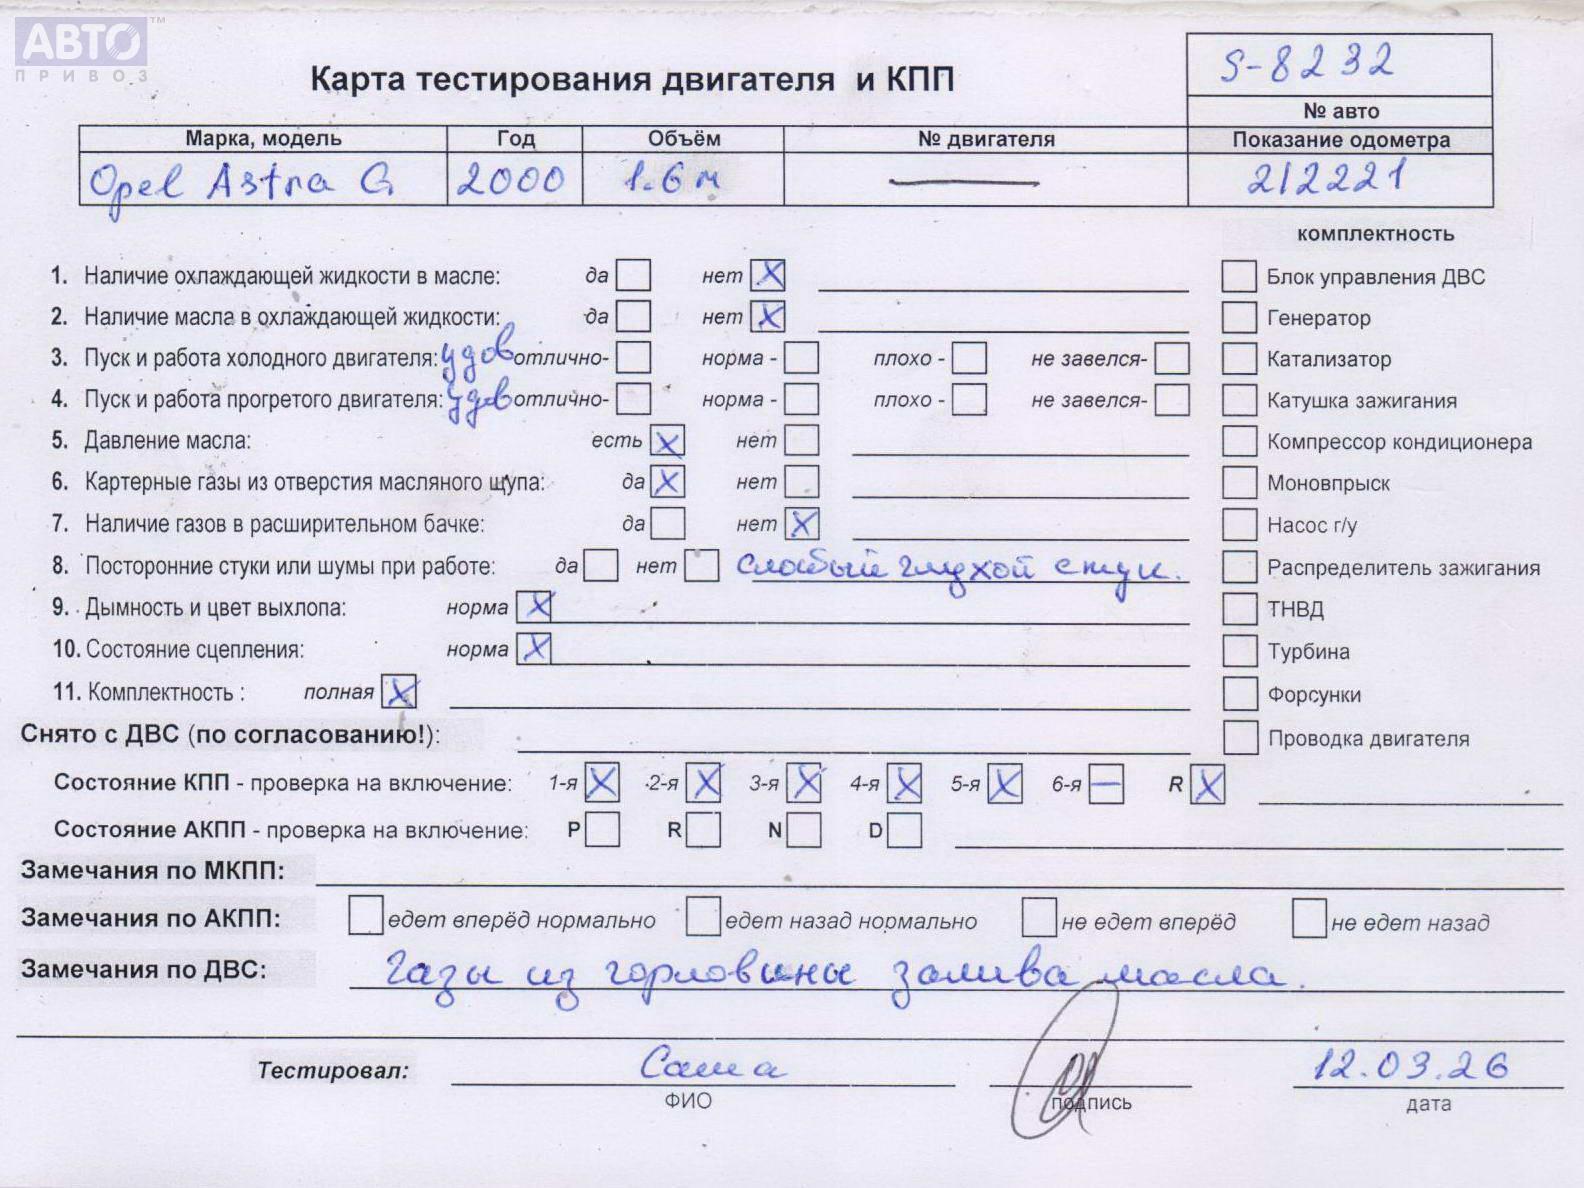 АВТО™
ПРИВОЗ
Карта тестирования двигателя и КПП
S-8232
№ авто
Марка, модель Год Объём № двигателя Показание одометра
Opel Astra G 2000 1.6 м — 212221
комплектность
1. Наличие охлаждающей жидкости в масле: да нет X Блок управления ДВС
2. Наличие масла в охлаждающей жидкости: да нет X Генератор
3. Пуск и работа холодного двигателя: удов отлично- норма - плохо - не завелся- Катализатор
4. Пуск и работа прогретого двигателя: удов отлично- норма - плохо - не завелся- Катушка зажигания
5. Давление масла: есть X нет Компрессор кондиционера
6. Картерные газы из отверстия масляного щупа: да X нет Моновпрыск
7. Наличие газов в расширительном бачке: да нет X Насос г/у
8. Посторонние стуки или шумы при работе: да нет слабый глухой стук. Распределитель зажигания
9. Дымность и цвет выхлопа: норма X ТНВД
10. Состояние сцепления: норма X Турбина
11. Комплектность : полная X Форсунки
Снято с ДВС (по согласованию!): Проводка двигателя
Состояние КПП - проверка на включение: 1-я X 2-я X 3-я X 4-я X 5-я X 6-я — R X
Состояние АКПП - проверка на включение: P R N D
Замечания по МКПП:
Замечания по АКПП: едет вперёд нормально едет назад нормально не едет вперёд не едет назад
Замечания по ДВС: Газы из горловины залива масла.
Тестировал: Саша 12.03.26
ФИО подпись дата